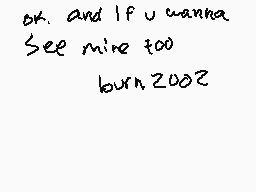 ok. and If u wanna
See mine too
burn2002